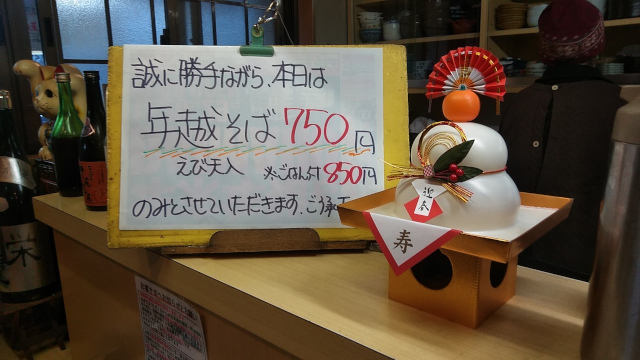 誠に勝手ながら、本日は
年越そば 750円
えび天入 ※ごはん付 850円
のみとさせていただきます。ご承
迎春
寿